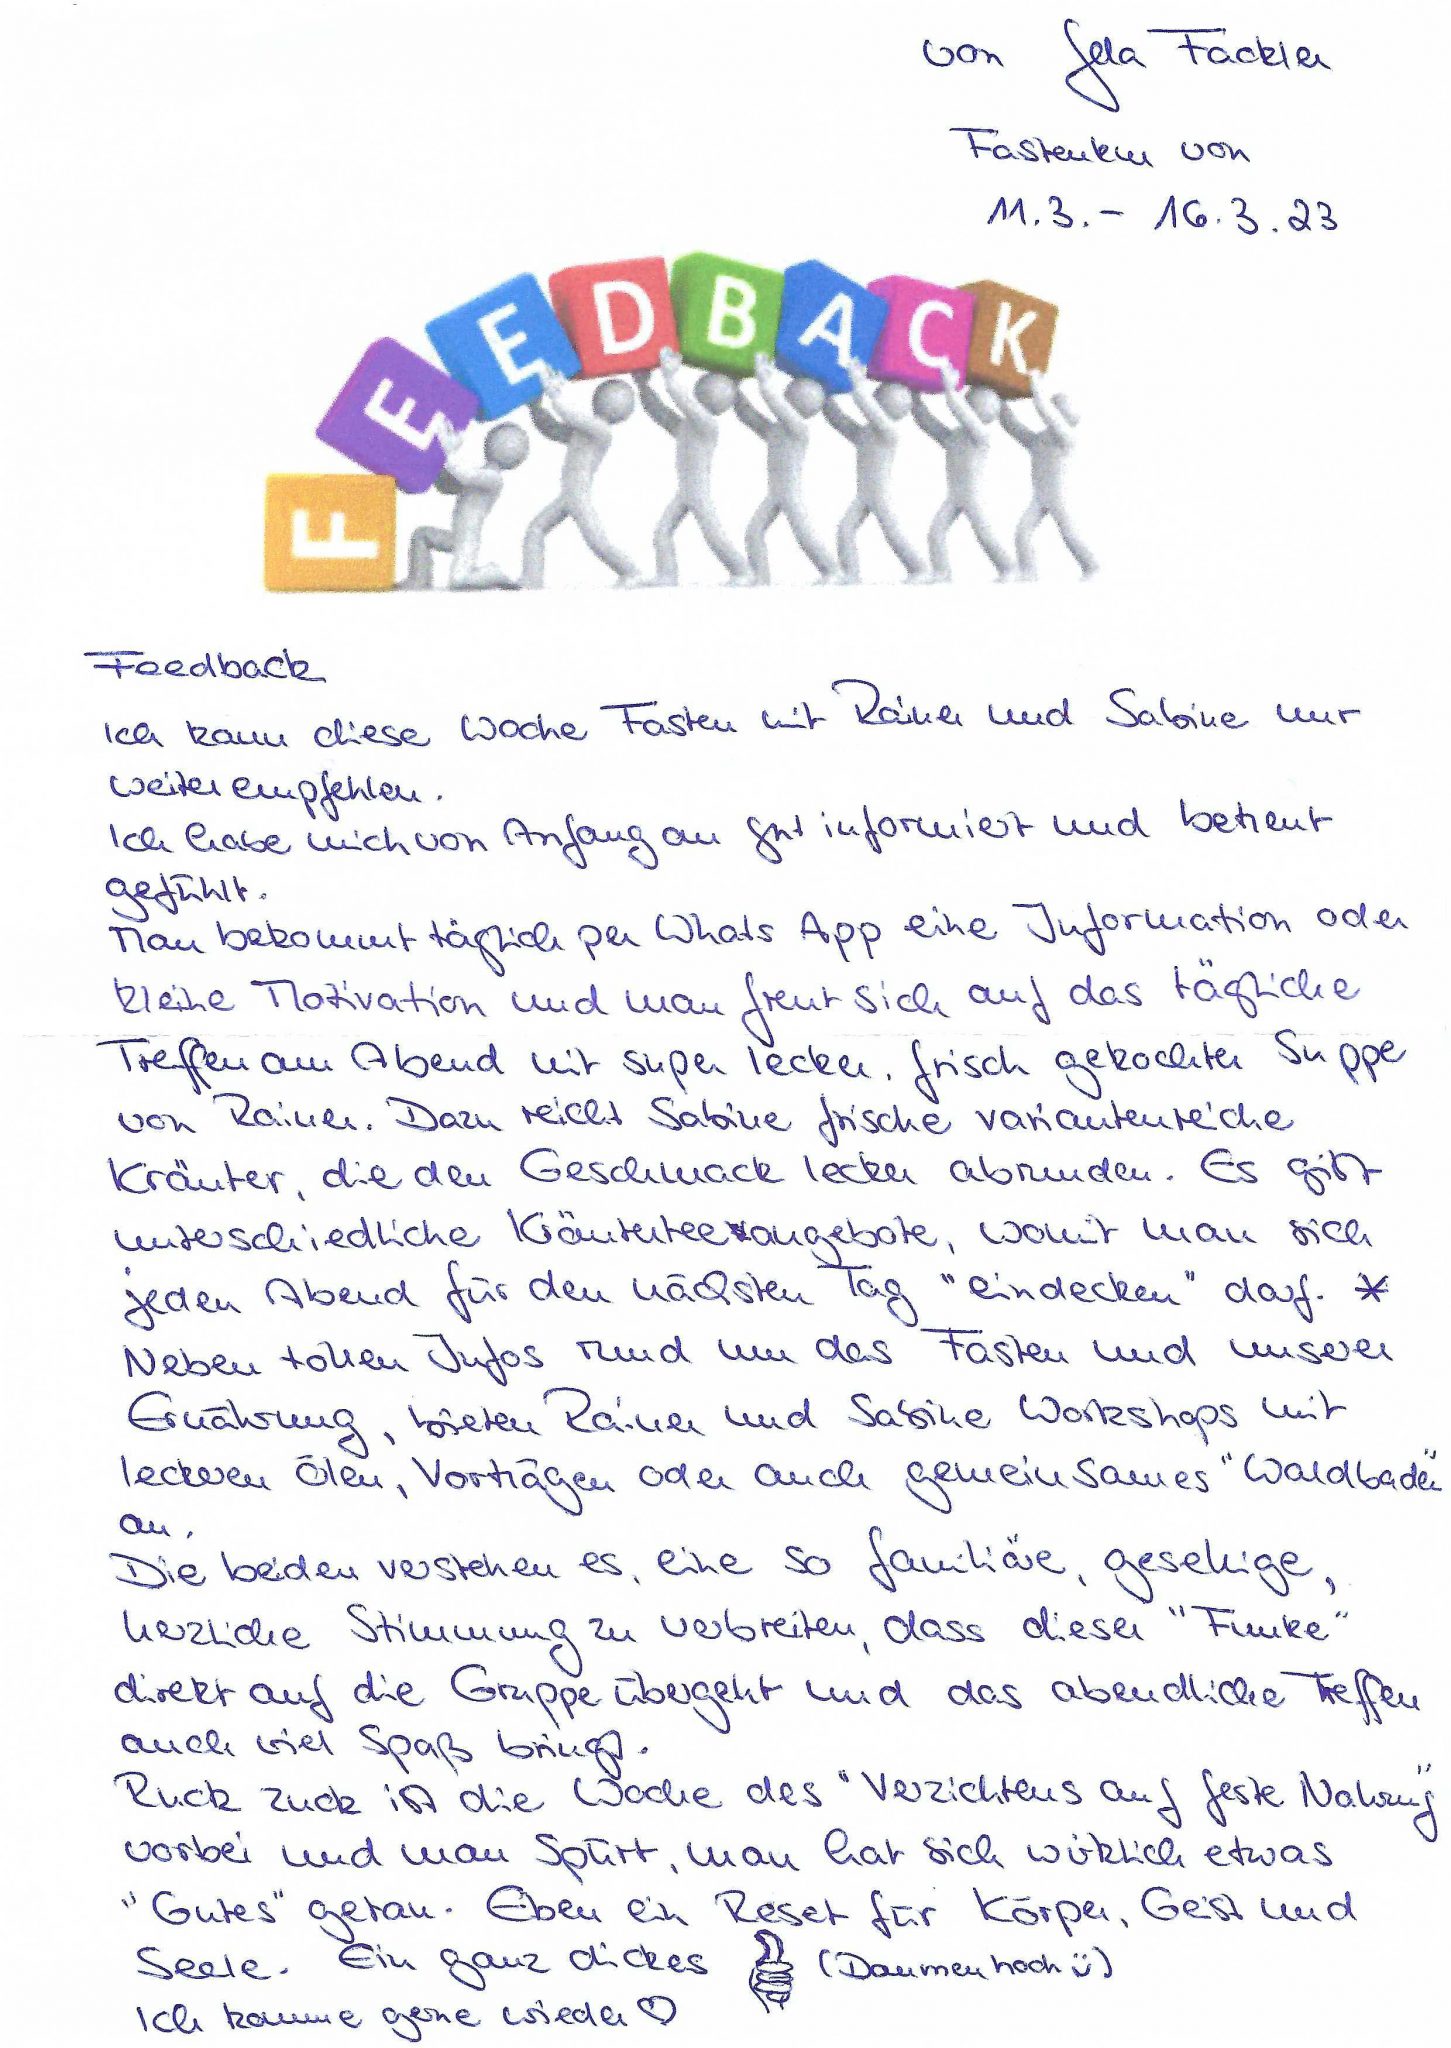 von Gela Fackler
Fastenkur von
11.3.- 16.3.23
FEEDBACK
Feedback
Ich kann diese Woche Fasten mit Rainer und Sabine nur
weiterempfehlen.
Ich habe mich von Anfang an gut informiert und betreut
gefühlt.
Man bekommt täglich per Whats App eine Information oder
kleine Motivation und man freut sich auf das tägliche
Treffen am Abend mit super lecker, frisch gekochter Suppe
von Rainer. Dazu reicht Sabine frische variantenreiche
Kräuter, die den Geschmack lecker abrunden. Es gibt
unterschiedliche Kräuterteeangebote, womit man sich
jeden Abend für den nächsten Tag "eindecken" darf. *
Neben tollen Infos rund um das Fasten und unserer
Ernährung, bieten Rainer und Sabine Workshops mit
leckeren Ölen, Vorträgen oder auch gemeinsames "Waldbaden"
an.
Die beiden verstehen es, eine so familiäre, gesellige,
herzliche Stimmung zu verbreiten, dass dieser "Funke"
direkt auf die Gruppe übergeht und das abendliche Treffen
auch viel Spaß bringt.
Ruck zuck ist die Woche des "Verzichtens auf feste Nahrung"
vorbei und man spürt, man hat sich wirklich etwas
"Gutes" getan. Eben ein Reset für Körper, Geist und
Seele. Ein ganz dickes (Daumen hoch☺)
Ich komme gerne wieder ♡